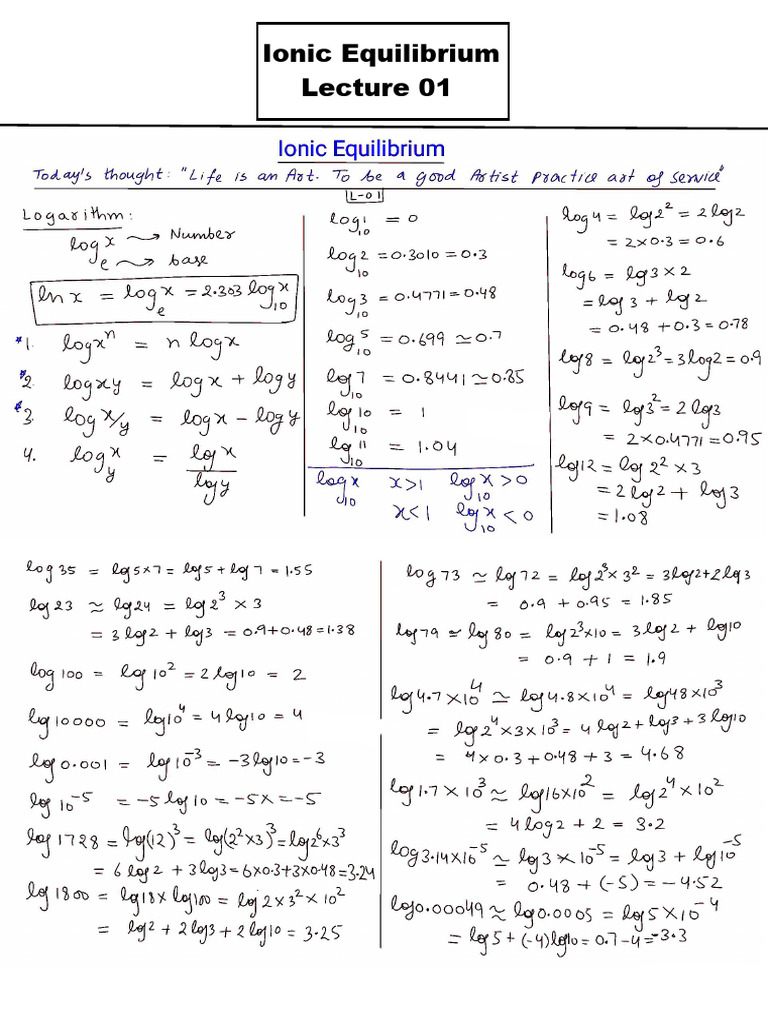 Ionic Equilibrium
Lecture 01
Ionic Equilibrium
Today's thought: "Life is an Art. To be a good Artist Practice art of service"
L-01
Logarithm:
log x → Number
e → base
ln x = log_e x = 2.303 log_10 x
*1. log x^n = n log x
*2. log xy = log x + log y
*3. log x/y = log x - log y
4. log_y x = log x / log y
log_10 1 = 0
log_10 2 = 0.3010 = 0.3
log_10 3 = 0.4771 = 0.48
log_10 5 = 0.699 ≃ 0.7
log_10 7 = 0.8441 ≃ 0.85
log_10 10 = 1
log_10 11 = 1.04
log_10 x x>1 log_10 x > 0
x<1 log_10 x < 0
log 4 = log 2^2 = 2 log 2
= 2×0.3 = 0.6
log 6 = log 3×2
= log 3 + log 2
= 0.48 + 0.3 = 0.78
log 8 = log 2^3 = 3 log 2 = 0.9
log 9 = log 3^2 = 2 log 3
= 2×0.4771 = 0.95
log 12 = log 2^2 × 3
= 2 log 2 + log 3
= 1.08
log 35 = log 5×7 = log 5 + log 7 = 1.55
log 23 ≃ log 24 = log 2^3 × 3
= 3 log 2 + log 3 = 0.9+0.48 = 1.38
log 100 = log 10^2 = 2 log 10 = 2
log 10000 = log 10^4 = 4 log 10 = 4
log 0.001 = log 10^-3 = -3 log 10 = -3
log 10^-5 = -5 log 10 = -5× = -5
log 1728 = log (12)^3 = log (2^2×3)^3 = log 2^6×3^3
= 6 log 2 + 3 log 3 = 6×0.3+3×0.48 = 3.24
log 1800 = log 18 × log 100 = log 2×3^2 × 10^2
= log 2 + 2 log 3 + 2 log 10 = 3.25
log 73 ≃ log 72 = log 2^3 × 3^2 = 3 log 2 + 2 log 3
= 0.9 + 0.95 = 1.85
log 79 ≃ log 80 = log 2^3×10 = 3 log 2 + log 10
= 0.9 + 1 = 1.9
log 4.7×10^4 ≃ log 4.8×10^4 = log 48×10^3
= log 2^4×3×10^3 = 4 log 2 + log 3 + 3 log 10
= 4×0.3 + 0.48 + 3 = 4.68
log 1.7×10^3 ≃ log 16×10^2 = log 2^4×10^2
= 4 log 2 + 2 = 3.2
log 3.14×10^-5 ≃ log 3×10^-5 = log 3 + log 10^-5
= 0.48 + (-5) = -4.52
log 0.00049 ≃ log 0.0005 = log 5×10^-4
= log 5 + (-4) log 10 = 0.7 - 4 = -3.3